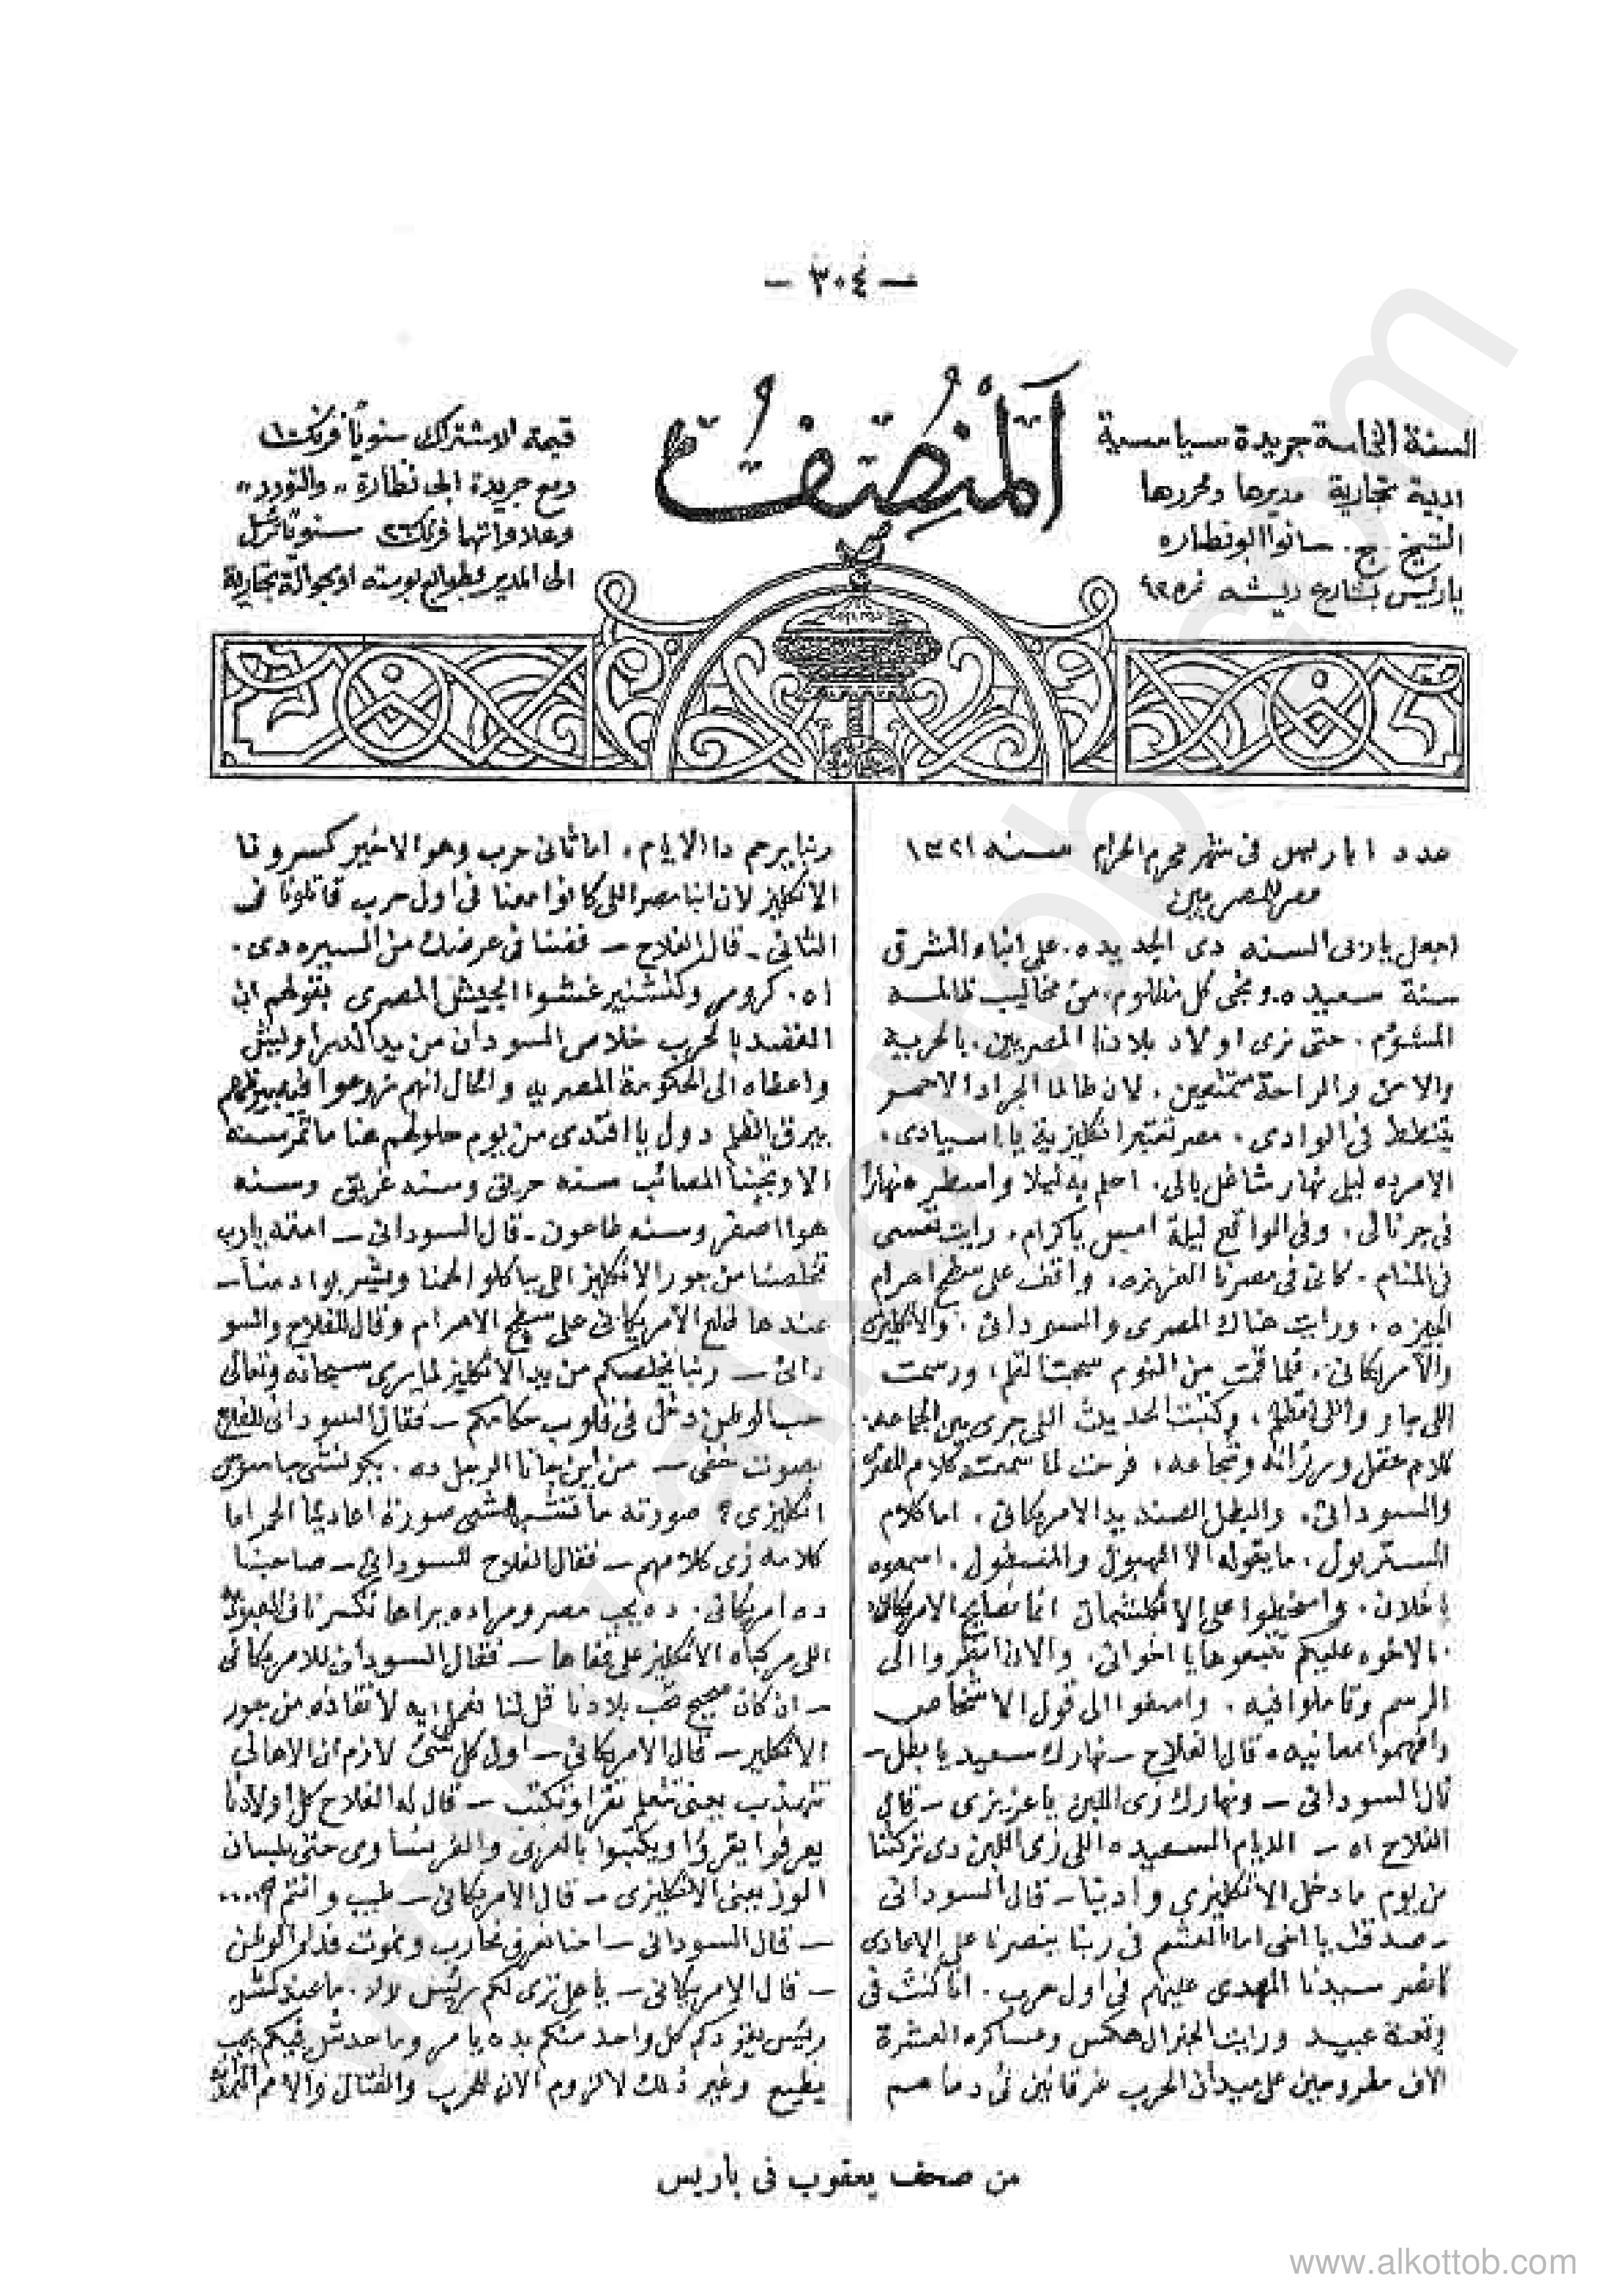 — ٣٠٤ —
اَلْمُنْصِفُ
السنة الخامسة جريدة سياسية
ادبية تجارية مديرها ومحررها
الشيخ ج. سانوا ابو نظاره
باريس بشارع ريشه نمره
قيمة الاشتراك سنوياً فرنك ١٠
ومع جريدة ابى نظارة ,, والتودد ,,
وعلاواتها فرنك ٢٦ سنوياً ترسل
الى المدير بطوابع بوسته او بحوالة تجارية
عدد ١ باريس فى شهر محرم الحرام سنه ١٣٢١
مصر للمصريين
اجعل يا ربى السنه دى الجديده . على ابناء الشرق
سنة سعيده . ونجى كل مظلوم ، من مخاليب ظالمه
المشؤم . حتى نرى اولاد بلادنا المصريين ، بالحرية
والامن والراحة متمتعين . لان طالما الجراد الاحمر
يتنطط فى الوادى ، مصر تعتبر انكليزية يا اسيادى ،
الامر ده ليل نهار شاغل بالى . احلم به ليلا واسطر عنه نهاراً
فى جرنالى ، وفى الواقع ليلة امبس يا كرام ، رايت نفسى
فى المنام . كانى فى مصرنا العزيزه ، واقف على سطح اهرام
الجيزه ، ورايت هناك المصرى والسودانى ، والانكليزى
والامريكانى ، فلما قمت من النوم سحبت القلم ، ورسمت
اللى جاير واللى ، وكتبت الحديث اللى جرى بين الجماعه
كلام عقل ورزانه وشجاعه ، فرحت لما سمعت كلام المصرى
والسودانى ، والبطل الصنديد الامريكانى ، اما كلام
المستر بول ، ما يقوله الا المهبول والمسطول . اسمعوه
يا خلان ، واضحكوا على الانكلشمان انما نصايح الامريكانى
بالاخوه عليكم تتبعوها يا اخوانى ، والان انظروا الى
الرسم وتاملوا فيه ، واصغوا الى قول الاشخاص
وافهموا معانيه ، قال الفلاح — نهارك سعيد يا بطل —
قال السودانى — ونهارك زى اللبن يا عزيزى — قال
الفلاح اه — الايام السعيده اللى زى اللبن دى تركتنا
من يوم ما دخل الانكليزى وادينا — قال السودانى
— صدقت يا اخى اما العشم فى ربنا ينصرنا على الاعادى
كنصر سيدنا المهدى عليهم فى اول حرب . انا كنت فى
وقعة عبيد ورايت الجنرال هكس وعساكره العشرة
الاف مطروحين على ميدان الحرب غرقانين فى دماهم
ربنا يرحم دا الايام ، اما ثانى حرب وهو الاخير كسرونا
الانكليز لان ابنا مصر اللى كانوا معنا فى اول حرب قاتلونا فى
الثانى — قال الفلاح — فضنا فى عرضك من السيره دى .
اه . كرومر وكتشنير غشوا الجيش المصرى بقولهم ان
القصد بالحرب خلاص السودان من يد الدراويش
واعطاه الى الحكومة المصريه والحال انهم
بيرق الظلم دول يا افندى من يوم حلولهم هنا ما تمر سنه
الا وتجينا المصائب سنه حريق وسنه غريق وسنه
هوا اصفر وسنه طاعون — قال السودانى — امته يا رب
تخلصنا من جور الانكليز اللى بياكلوا لحمنا ويشربوا دمنا —
عندها طلع الامريكانى على سطح الاهرام وقال للفلاح والسو
دانى — ربنا يخلصكم من يد الانكليز لما يرى سبحانه وتعالى
حب الوطن دخل فى قلوب حكامكم — فقال السودانى للفلاح
بصوت خفى — من اين جانا الرجل ده . يكونشى جاسوس
انكليزى ؟ صورته ما تشبهشى صورة اعادينا الحمر اما
كلامه زى كلامهم — فقال الفلاح للسودانى — صاحبنا
ده امريكانى . ده يحب مصر ومراده يراها تكسر ناف العبودية
اللى مركباه الانكليز على قفاها — فقال السودانى للامريكانى
— ان كان صحيح تحب بلادنا قل لنا نعمل ايه لانقاذه من جور
الانكليز — قال الامريكانى — اول كل شئ لازم ان الاهالى
تتهذب يعنى تتعلم تقرا وتكتب — قال له الفلاح كل اولادنا
يعرفوا يقروا ويكتبوا بالعربى والفرنساوى حتى بلسان
الوز يعنى الانكليزى — قال الامريكانى — طيب وانتم ؟....
— قال السودانى — احنا نعرف نحارب ونموت فدا الوطن
— قال الامريكانى — يا هل ترى لكم رئيس لالا . ما عندكمش
رئيس يقودكم كل واحد منكم بده يامر وما حدش فيكم يحب
يطيع وغير ذلك لا لزوم الان للحرب والقتال والامم
من صحف يعقوب فى باريس
www.alkottob.com